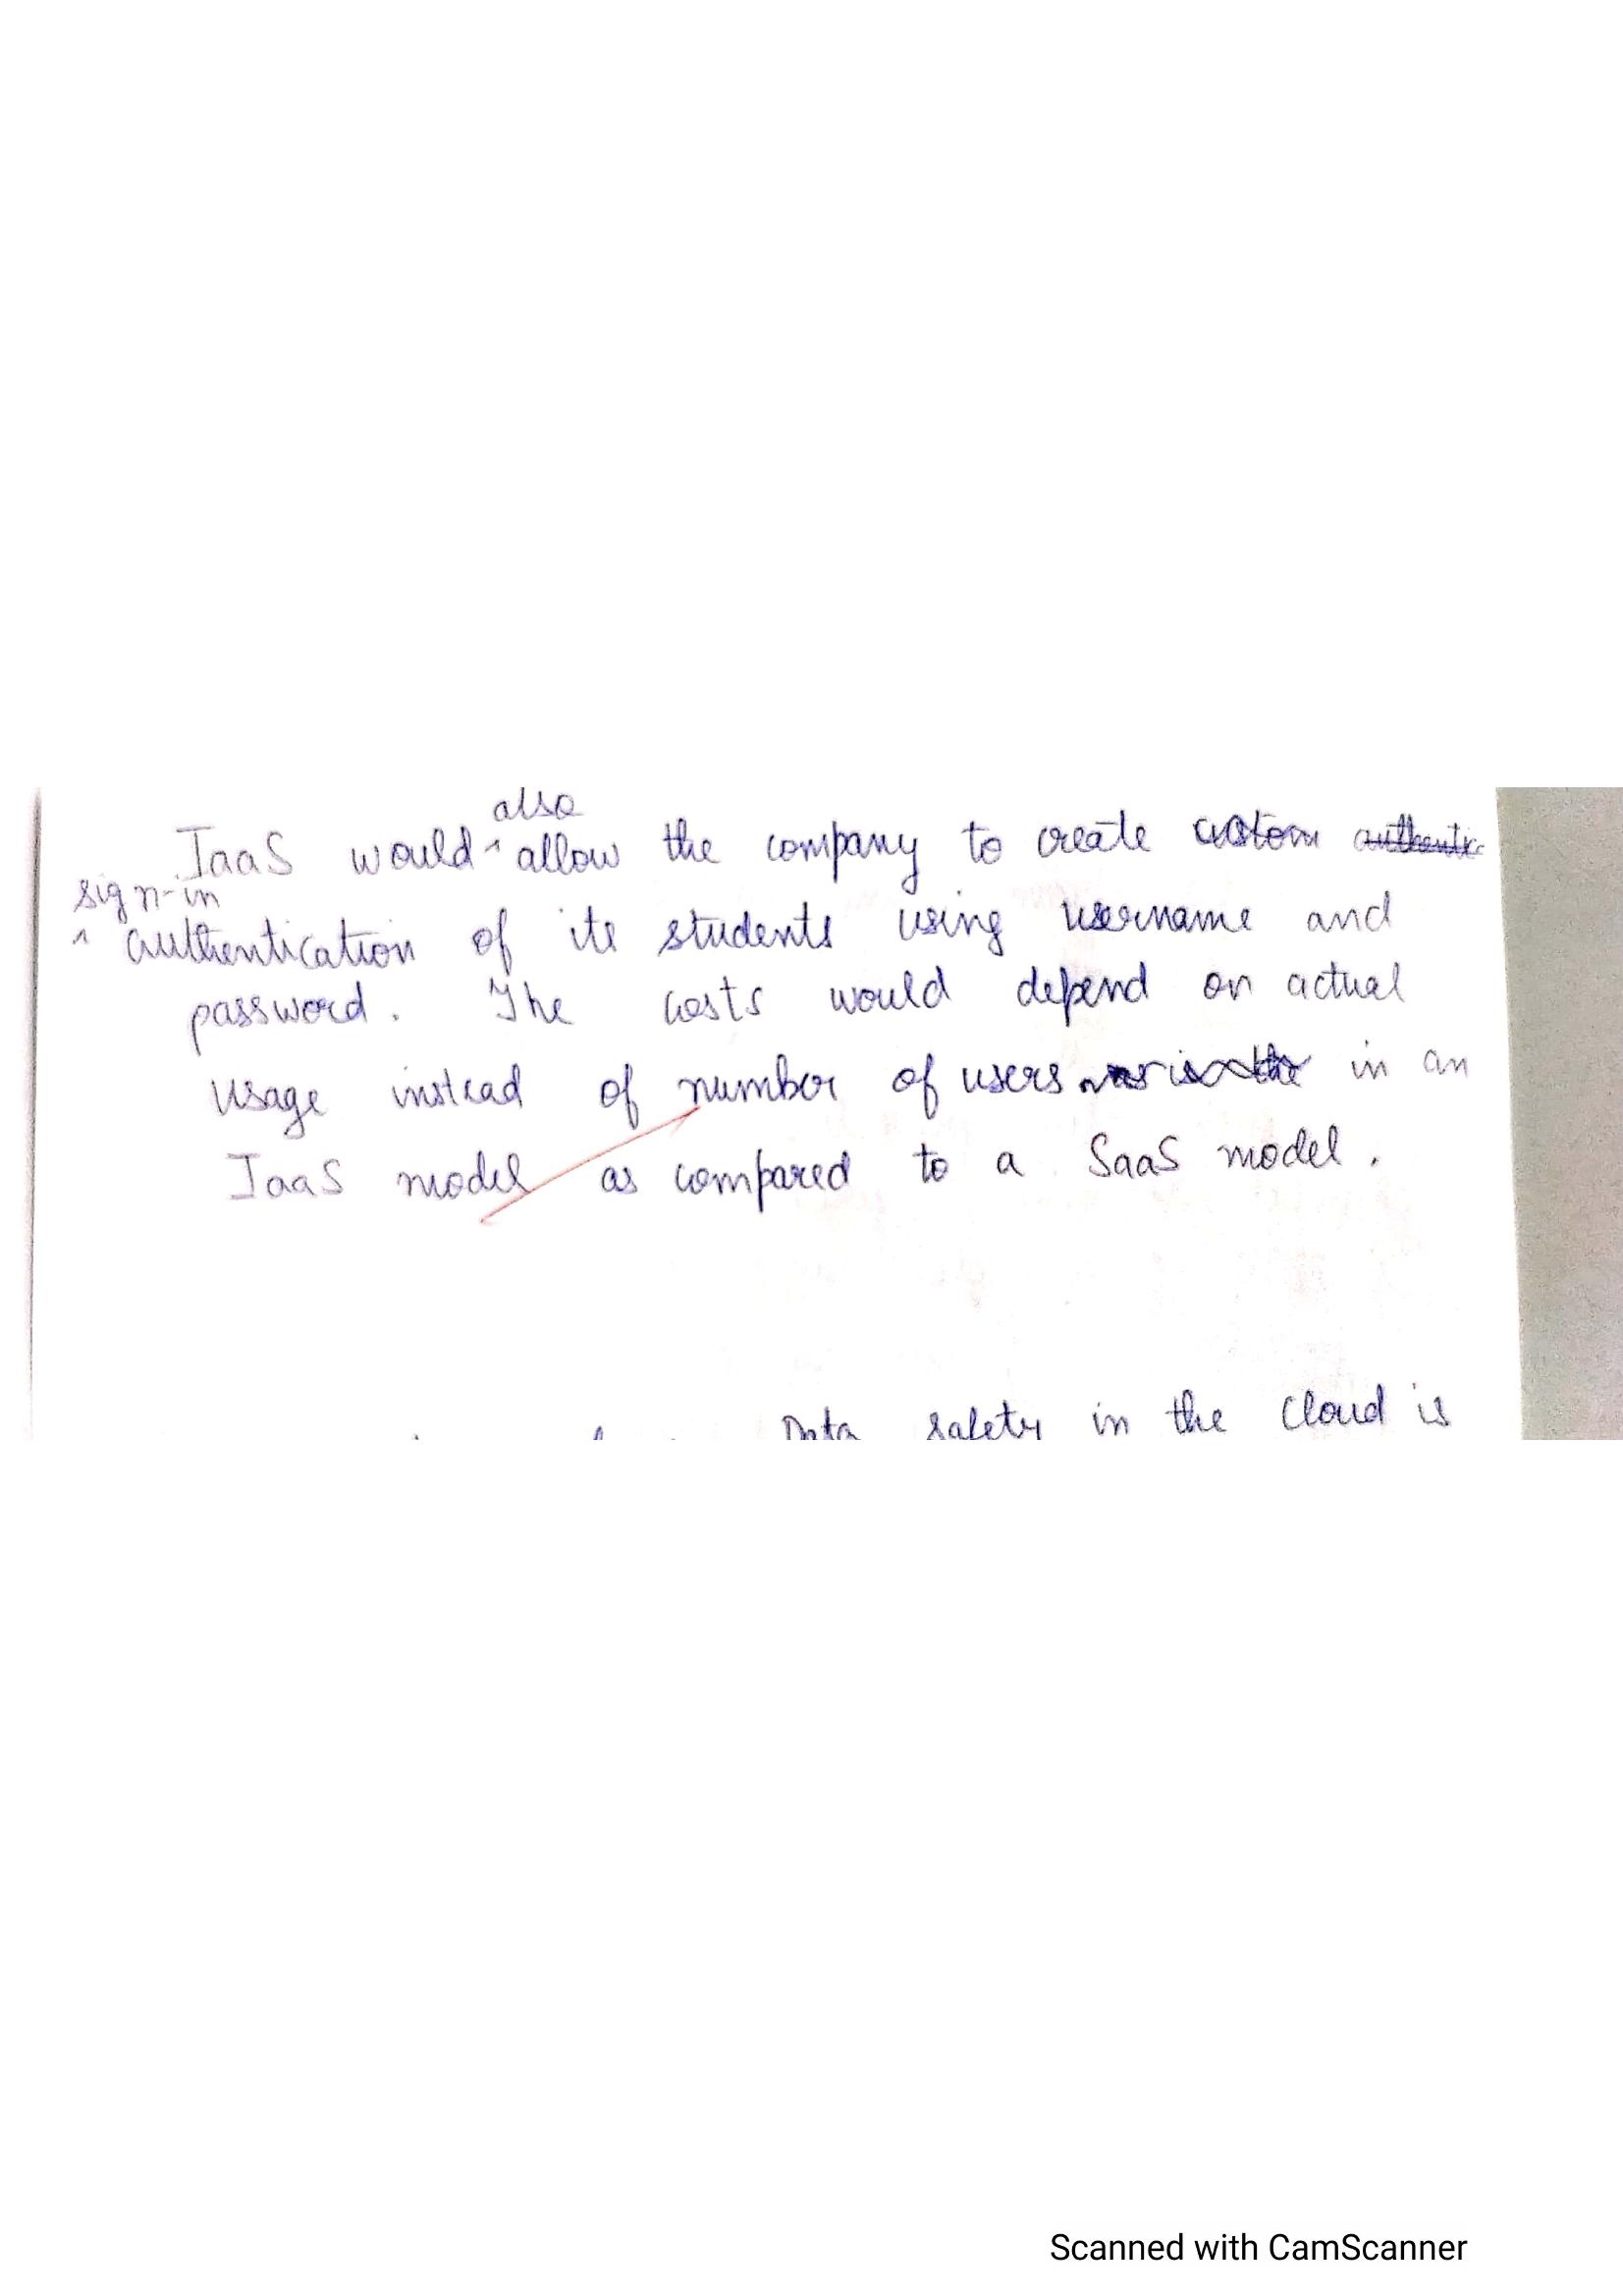 IaaS would also allow the company to create custom authentic
sign-in authentication of its students using username and
password. The costs would depend on actual
usage instead of number of users in an
IaaS model as compared to a SaaS model.
Data safety in the cloud is
Scanned with CamScanner